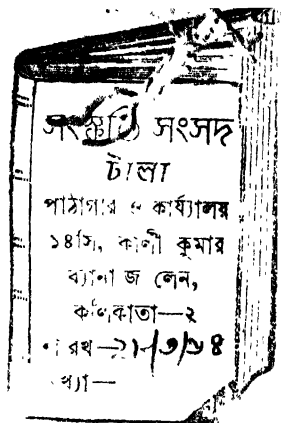 সংস্কৃতি সংসদ
টালা
পাঠাগার ও কার্য্যালয়
১৪সি, কালী কুমার
ব্যানার্জ লেন,
কলিকাতা—২
রিখ—২১/৩/৬৪
খ্যা—